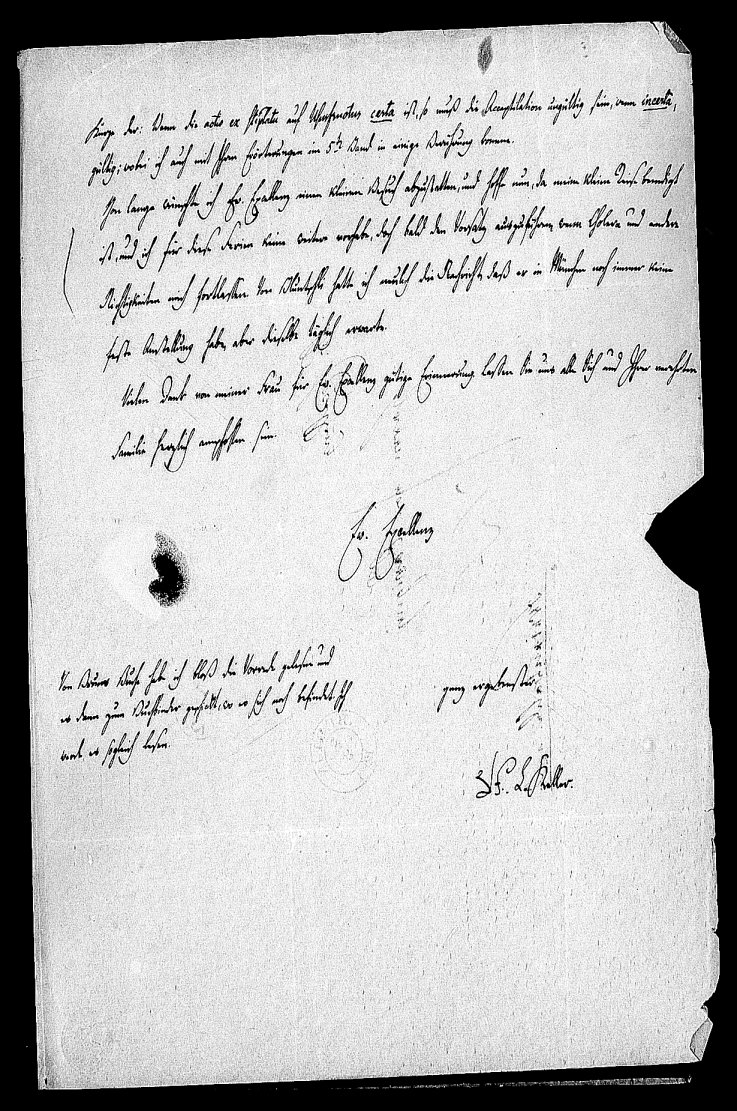 Kurze der: Wenn die actio ex stipulatu auf certa ist, so muß die Acceptilation ungültig sein, wenn incerta,
gültig; wobei ich auch mit Ihren Erörterungen im 5th Band in einige Berührung komme.
Schon lange wünschte ich Ew. Excellenz einen kleinen Besuch abzustatten, und hoffe nun, da meine kleine Reise beendigt
ist, und ich für diese Ferien keine weitere vorhabe, doch bald den Vorsatz auszuführen, wenn Cholera und andere
Nichtigkeiten mich fortlassen. Von Bluntschli hatte ich neulich die Nachricht, daß er in München noch immer keine
feste Anstellung habe, aber dieselbe täglich erwarte.
Vielen Dank von meiner Frau für Ew. Excellenz gütige Erinnerung. Lassen Sie uns alle Sich und Ihrer verehrten
Familie herzlich empfohlen sein.
Ew. Excellenz
Von Buche habe ich bloß die Vorrede gelesen und
es dann zum Buchbinder geschickt, wo es sich noch befindet. Ich
werde es sogleich lesen.
ganz ergebenster
F. L. Keller.